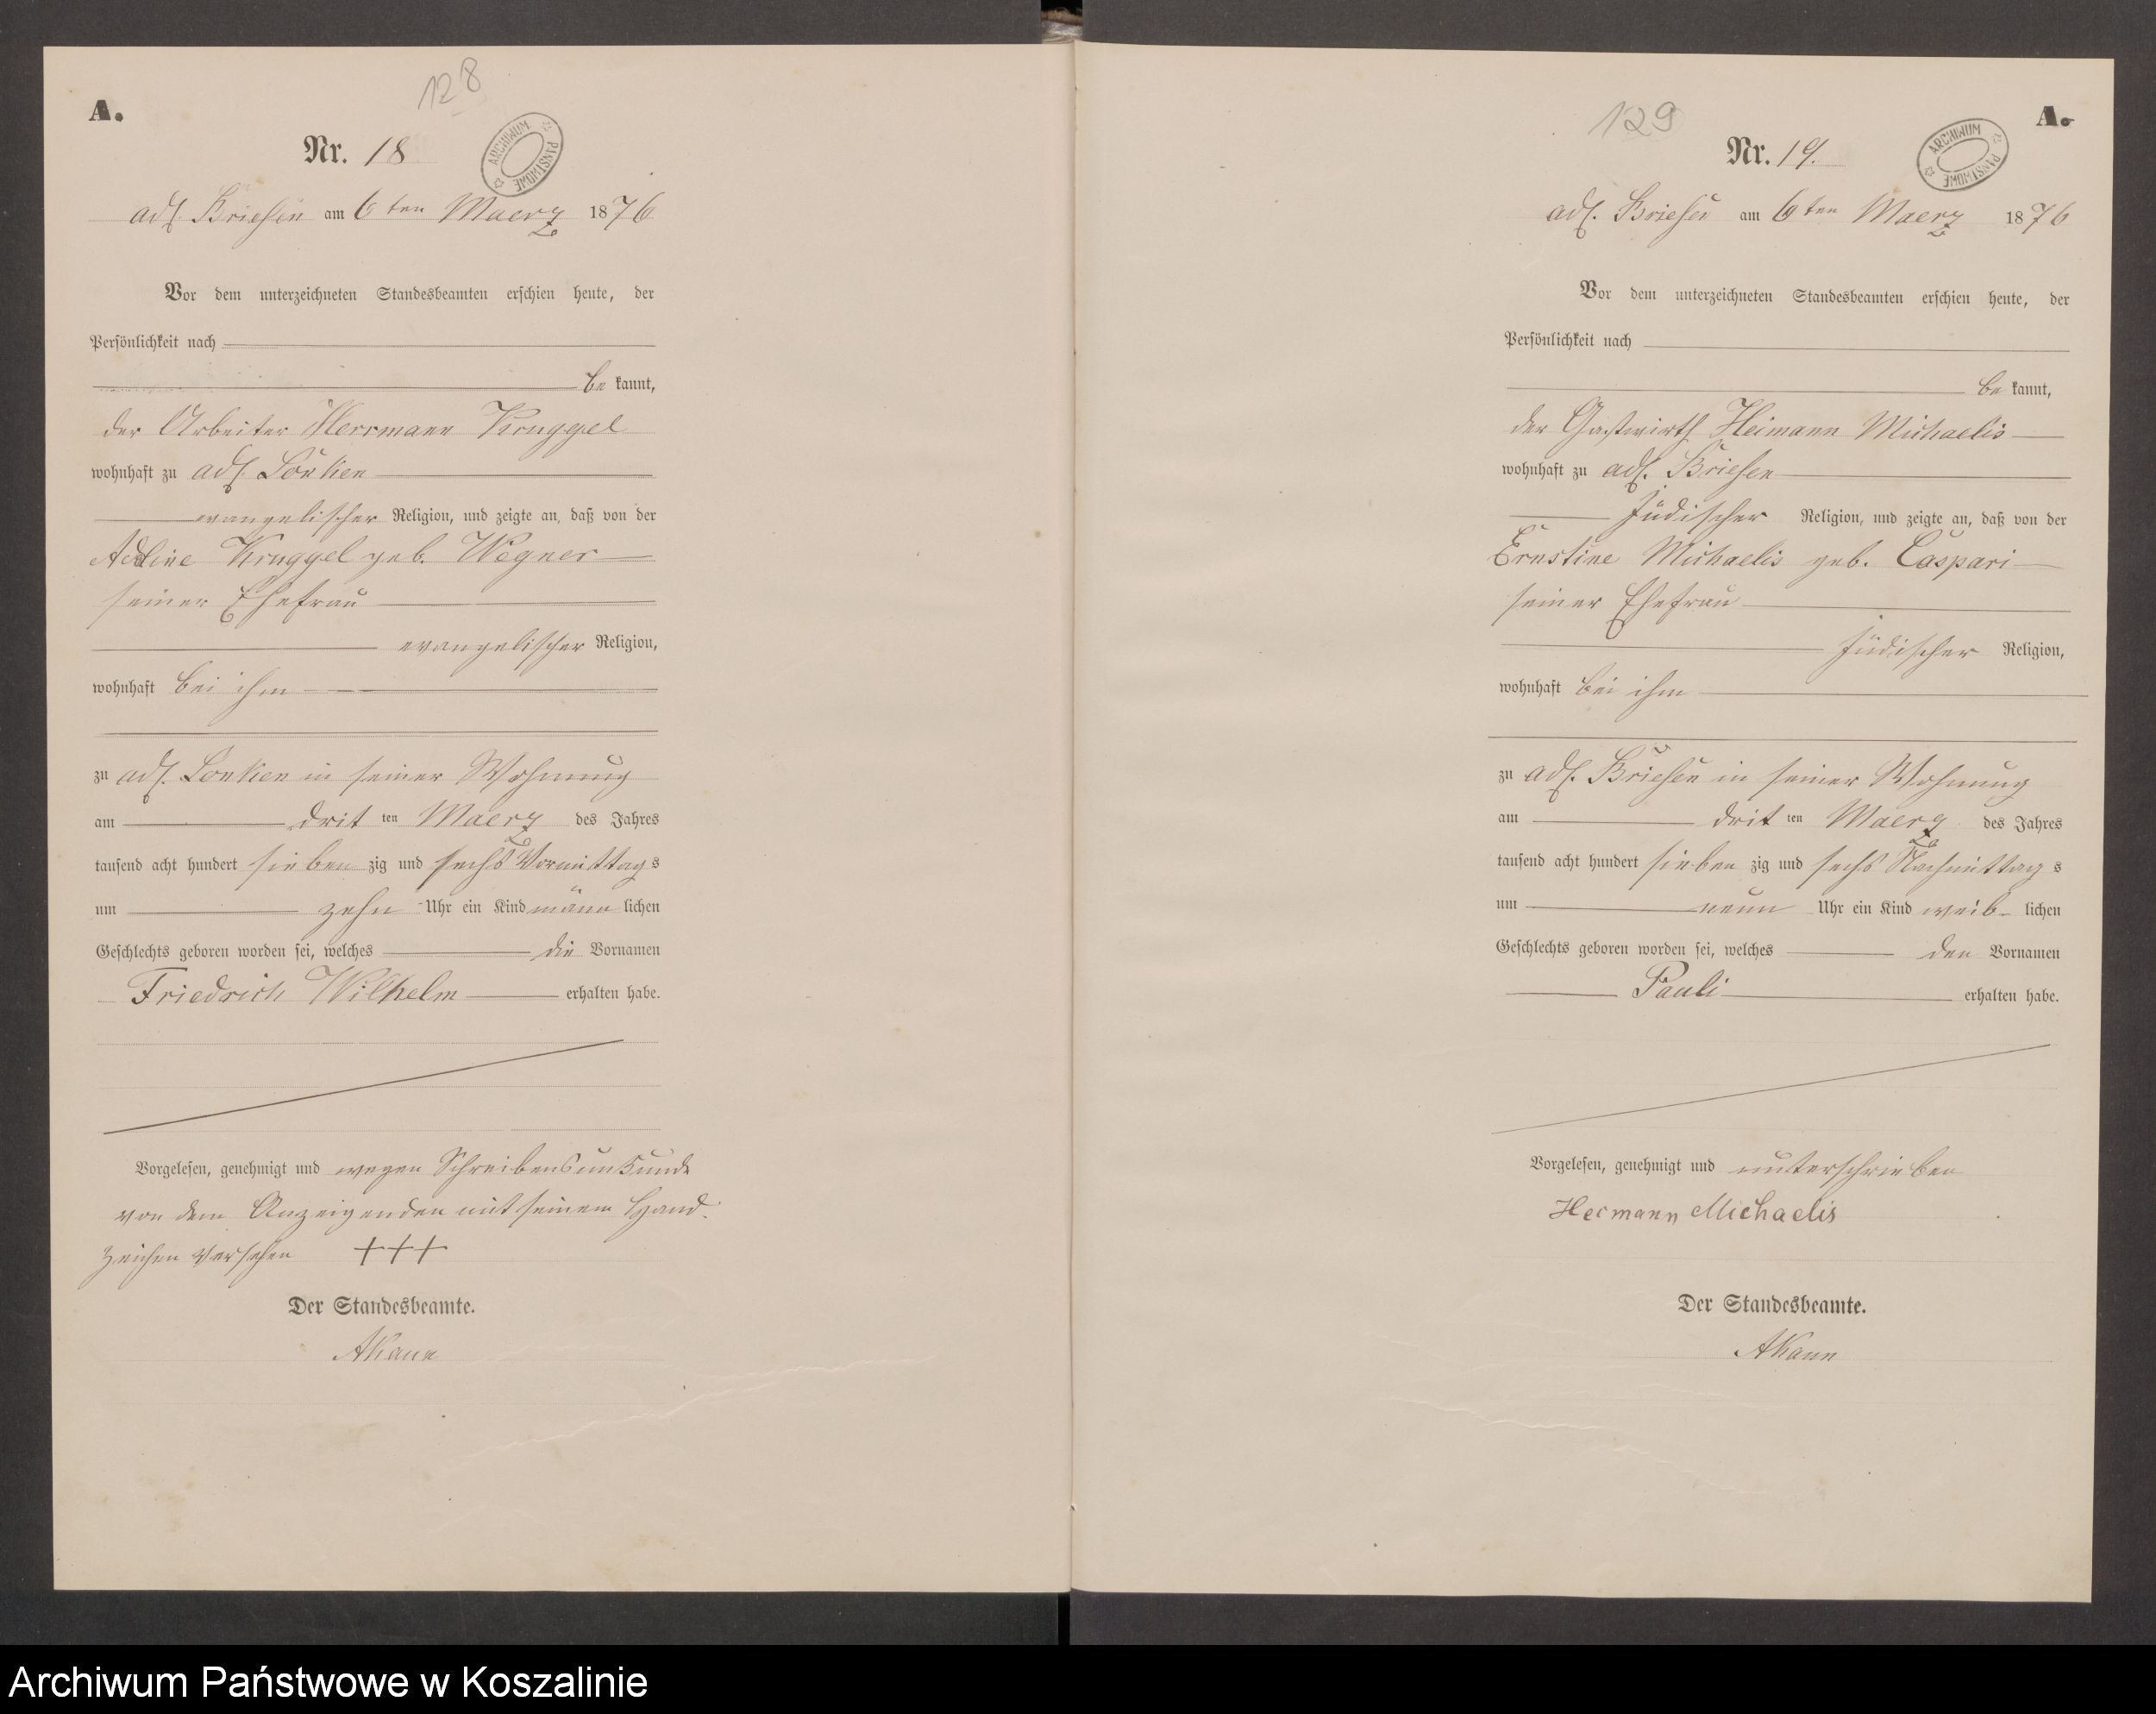 128
A.
Nr. 18
ARCHIWUM PAŃSTWOWE
adl. Briesen am 6 ten Maerz 1876
Vor dem unterzeichneten Standesbeamten erschien heute, der
Persönlichkeit nach
be kannt,
der Arbeiter Herrmann Kruggel
wohnhaft zu adl. Lonken
evangelischer Religion, und zeigte an, daß von der
Adeline Kruggel geb. Wegner
seiner Ehefrau
evangelischer Religion,
wohnhaft bei ihm
zu adl. Lonken in seiner Wohnung
am drit ten Maerz des Jahres
tausend acht hundert sieben zig und sechs Vormittag s
um zehn Uhr ein Kind männ lichen
Geschlechts geboren worden sei, welches die Vornamen
Friedrich Wilhelm erhalten habe.
Vorgelesen, genehmigt und wegen Schreibensunkunde
von dem Anzeigenden mit seinem Hand-
zeichen versehen +++
Der Standesbeamte.
129
A.
Nr. 19.
ARCHIWUM PAŃSTWOWE
adl. Briesen am 6 ten Maerz 1876
Vor dem unterzeichneten Standesbeamten erschien heute, der
Persönlichkeit nach
be kannt,
der Gastwirth Heimann Michaelis
wohnhaft zu adl. Briesen
Jüdischer Religion, und zeigte an, daß von der
Ernstine Michaelis geb. Caspari
seiner Ehefrau
Jüdischer Religion,
wohnhaft bei ihm
zu adl. Briesen in seiner Wohnung
am drit ten Maerz des Jahres
tausend acht hundert sieben zig und sechs Nachmittag s
um neun Uhr ein Kind weib- lichen
Geschlechts geboren worden sei, welches den Vornamen
Pauli erhalten habe.
Vorgelesen, genehmigt und unterschrieben
Heimann Michaelis
Der Standesbeamte.
Archiwum Państwowe w Koszalinie